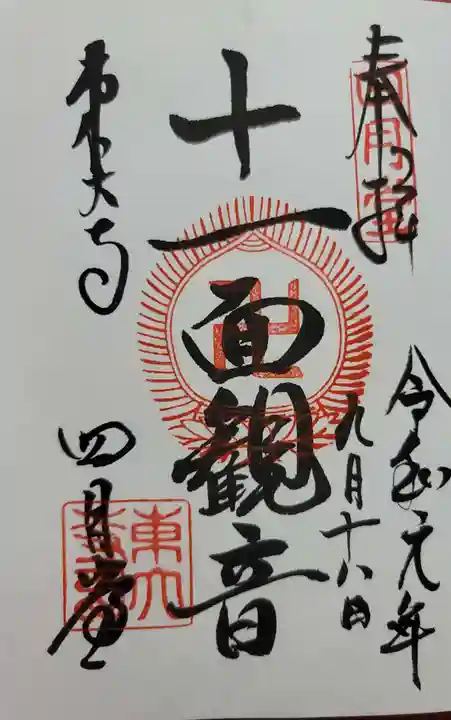 奉拝
四月堂
令和元年
九月十八日
十一面観音
東大寺
四月堂
東大寺